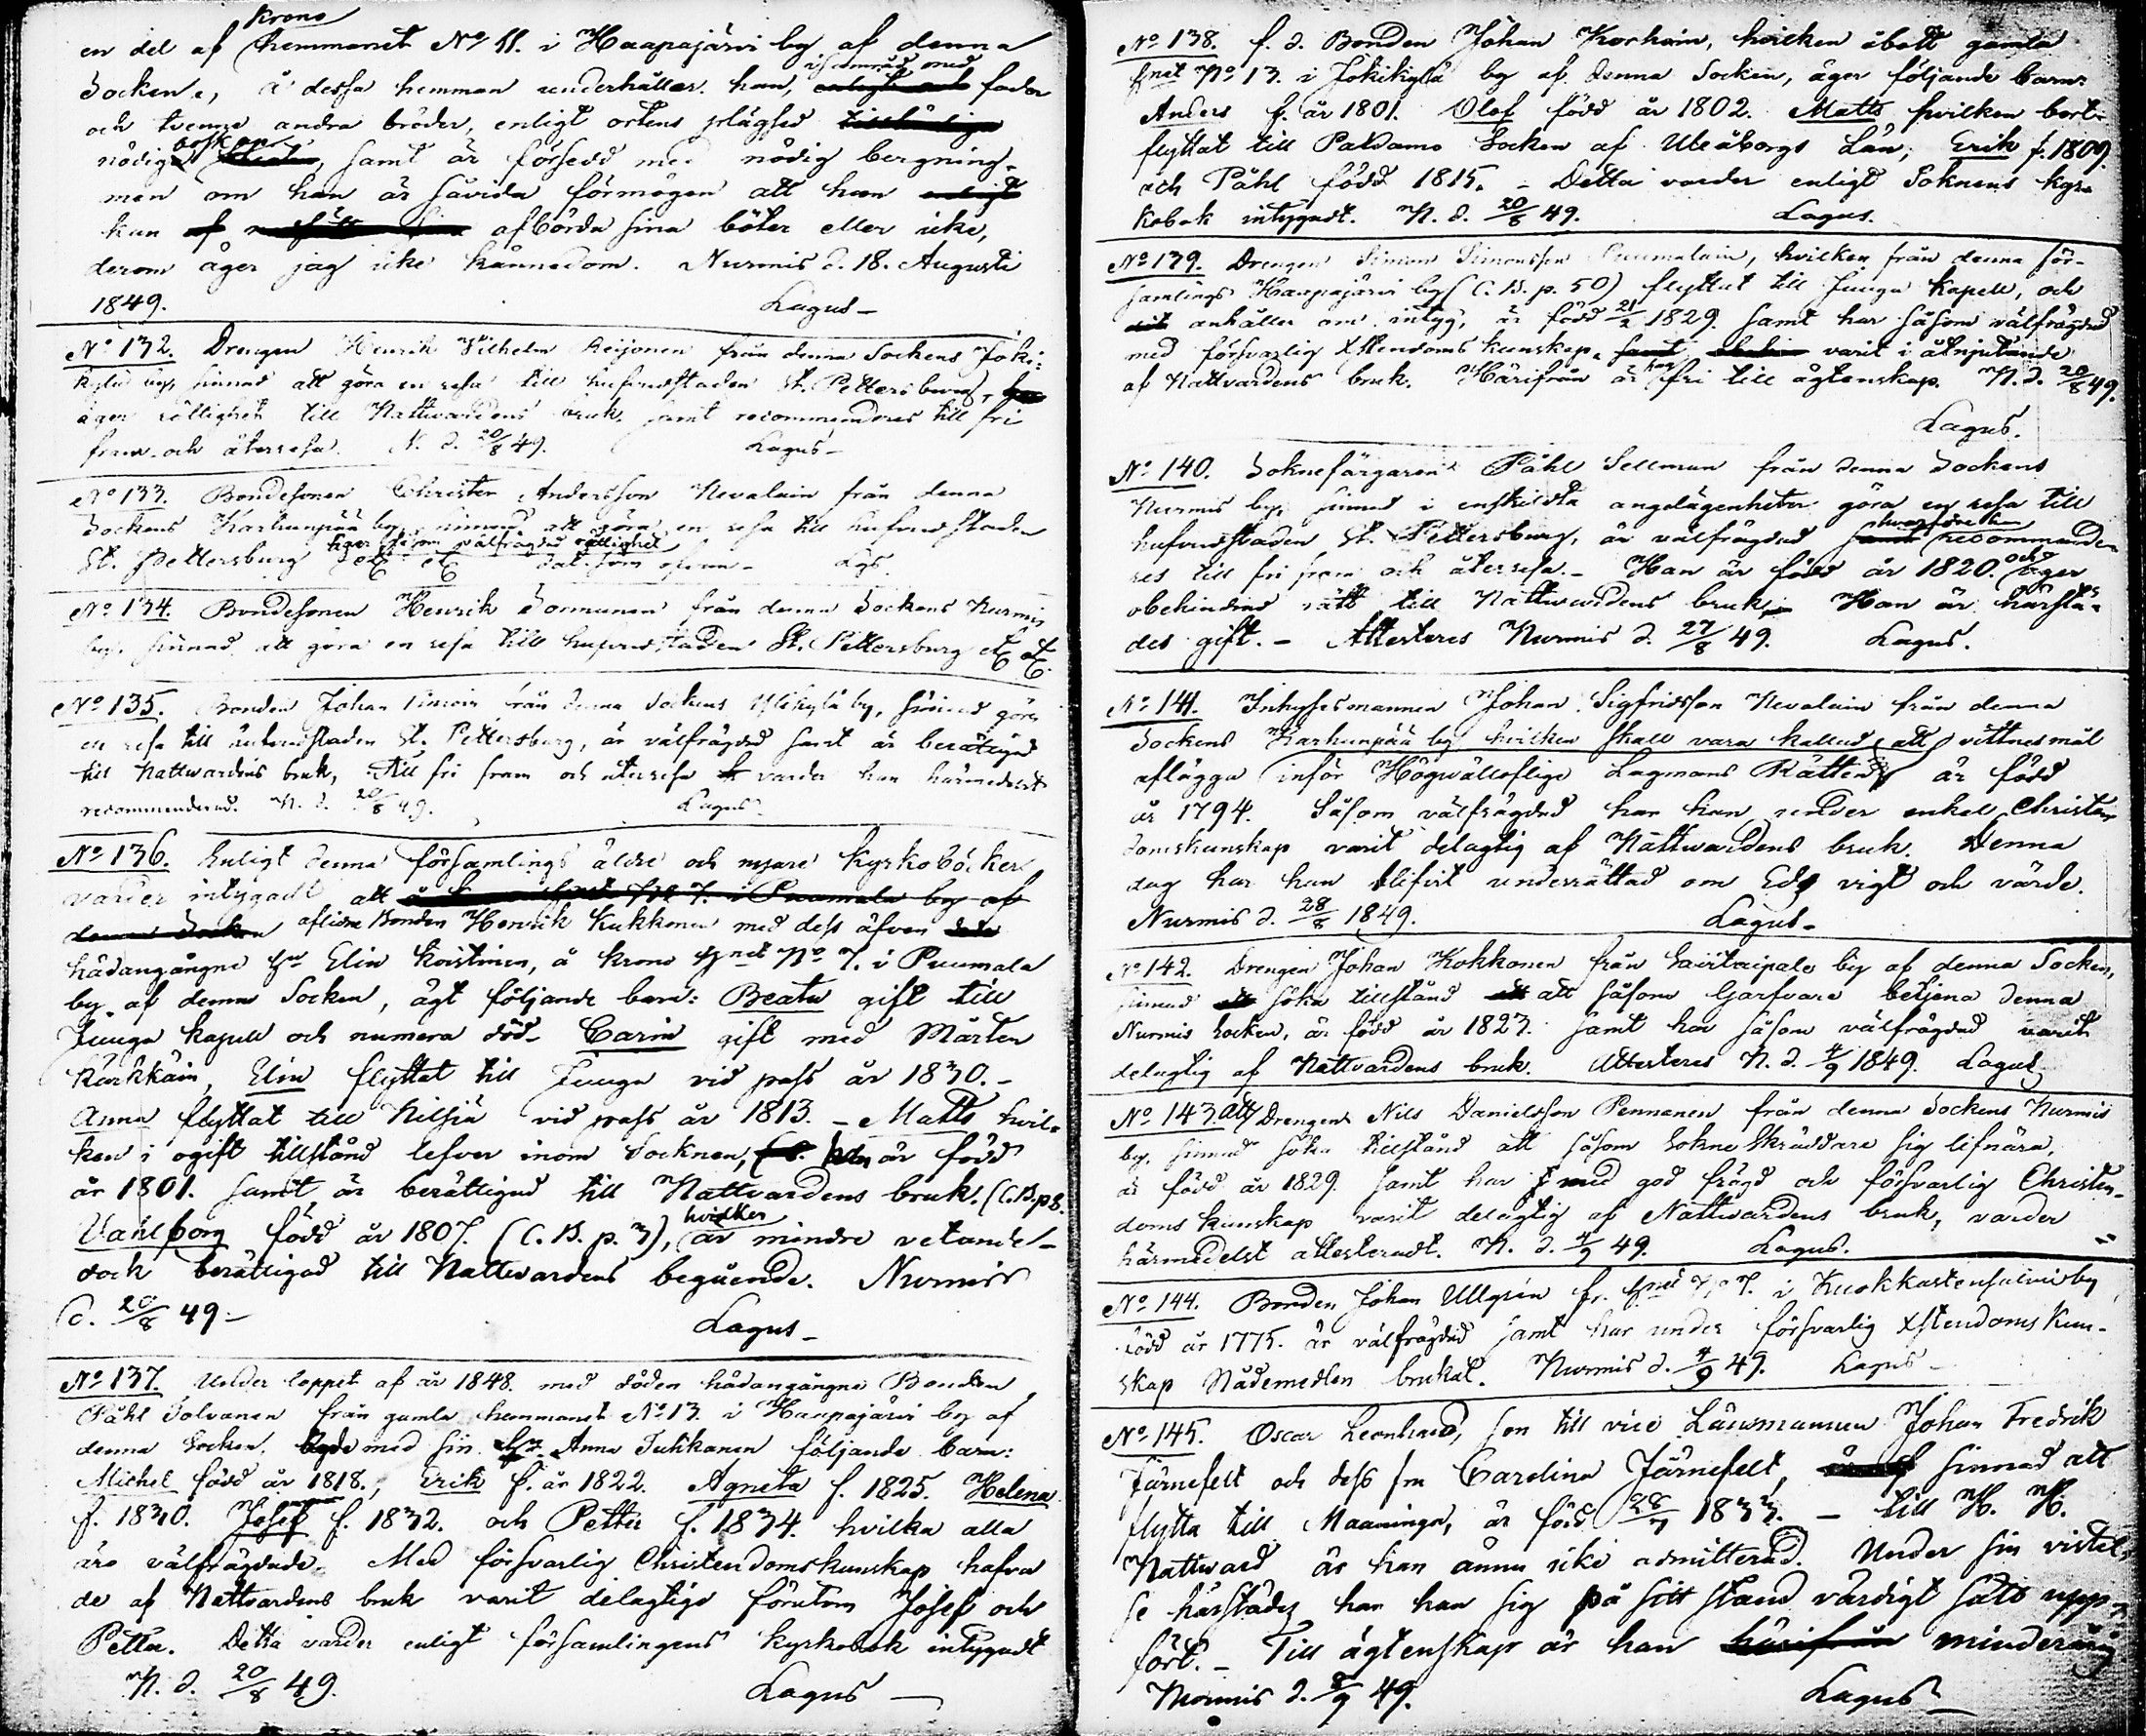 Krono
en del af hemmanet No 11. i Haapajärvi by af denna
Socken, å dessa hemman underhåller han, i samråd med fader
och tvenne andra bröder, enligt ortens plägsed
nödig boskap, samt är försedd med nödig bergning,
men om han är såvida förmögen att han
kan afbörda sina böter eller icke,
derom äger jag icke kännedom. Nurmis d. 18. Augusti
1849. Lagus
No 132. Drengen Henrik Vilhelm Reijonen från denna Sockens Joki-
kylä by, sinnad att göra en resa till hufvudstaden St. Pettersburg,
äger rättighet till Nattvardens bruk, samt recommenderas till fri
fram- och återresa. N. d. 20/8 49. Lagus
No 133. Bondesonen Christer Andersson Nevalain från denna
Sockens Karhunpää by, sinnad att göra en resa till hufvudstaden
äger såsom välfrägdad rättighet
St. Pettersburg etc etc dat. som ofvan. Lgs.
No 134. Bondesonen Henrik Sormunen från denna Sockens Nurmis
by, sinnad att göra en resa till hufvudstaden St. Pettersburg etc etc.
No 135. Bonden Johan från denna Sockens Ylikylä by, sinnad göra
en resa till hufvudstaden St. Pettersburg, är välfrägdad samt är berättigad
till Nattvardens bruk, till fri fram och återresa varder han härmedelst
recommenderad. N. d. 20/8 49. Lagus
No 136. Enligt denna församlings äldre och nyare Kyrkoböcker
varder intygadt att å hemmanet No 7. i Puumala by af
denna Socken aflidne Bonden Henrik Kukkonen med dess äfven
hädangångne hu Elin Koistinen, å Krono hnet No 7. i Puumala
by af denna Socken, ägt följande barn: Beata gift till
Juuga kapell och numera död. Carin gift med Mårten
Kärkkäin, Elin flyttat till Juuga vid pass år 1830.
Anna flyttat till Nilsiä vid pass år 1813. Matts hvil-
ken i ogift tillstånd lefver inom Socknen, är född
år 1801. samt är berättigad till Nattvardens bruk. (C.B.p 2.
Vahlborg född år 1807. (C.B. p. 3), hvilken är mindre vetande
dock berättigad till Nattvardens begående. Nurmis
d. 20/8 49 Lagus
No 137. Under loppet af år 1848. med döden hädangångne Bonden
Påhl Tolvanen från gamla hemmanet No 13 i Haapajärvi by af
denna Socken, ägde med sin hu Anna Tuhkanen följande barn:
Michel född år 1818., Erik f. år 1822. Agneta f. 1825. Helena
f. 1830. Josef f. 1832. och Petter f. 1834. hvilka alla
äro välfrägdade. Med försvarlig Christendomskunskap hafva
de af Nattvardens bruk varit delagtige förutom Josef och
Petter. Detta varder enligt församlingens kyrkobok intygadt
N. d. 20/8 49. Lagus
No 138. f. d. Bonden Johan Korhoin, hvilken åbott gamla
hnet No 13. i Jokikylä by af denna Socken, äger följande barn:
Anders f. år 1801. Olof född år 1802. Matts hvilken bort-
flyttat till Paldamo Socken af Uleåborgs Län; Erik f. 1809.
och Påhl född 1815. - Detta varder enligt Soknens kyr-
kobok intygadt. N. d. 20/8 49. Lagus.
No 139. Drengen Simon Simonsson Puumalain, hvilken från denna för-
samlings Haapajärvi by (C.B. p. 50) flyttat till Juuga kapell, och
anhåller om intyg, är född 21/2 1829. samt har såsom välfrägdad
med försvarlig Xstendoms kunskap varit i åtnjutande
af Nattvardens bruk. Härifrån är han fri till ägtenskap. N. d. 20/8 49.
Lagus.
No 140. Soknefärgaren Påhl Sellman från denna Sockens
Nurmis by, sinnad i enskildta angelägenheter göra en resa till
hufvudstaden St. Pettersburg, är välfrägdad hvarföre han recommende-
res till fri fram och återresa. - Han är född år 1820. och äger
obehindrad rätt till Nattvardens bruk. Han är härstä-
des gift. - Attesteras Nurmis d. 27/8 49. Lagus.
No 141. Inhysesmannen Johan Sigfridsson Nevalain från denna
Sockens Karhunpää by hvilken skall vara kallad att vittnesmål
aflägga inför Högvälloflige Lagmans Rätten är född
år 1794. Såsom välfrägdad har han under enkel Christen-
domskunskap varit delagtig af Nattvardens bruk. Denna
dag har han blifvit underrättad om Eds vigt och värde.
Nurmis d. 28/8 1849. Lagus
No 142. Drengen Johan Kokkonen från Savitaipale by af denna Socken,
sinnad söka tillstånd att såsom Garfvare betjena denna
Nurmis Socken, är född år 1823. samt har såsom välfrägdad varit
delagtig af Nattvardens bruk. Attesteras N. d. 4/9 1849. Lagus
No 143. Att Drengen Nils Danielsson Pennanen från denna Sockens Nurmis
by, sinnad söka tillstånd att såsom Sokne Skräddare sig lifnära,
är född år 1829. samt har med god frägd och försvarlig Christen-
doms kunskap varit delagtig af Nattvardens bruk, varder
härmedelst attesteradt. N. d. 4/9 49. Lagus.
No 144. Bonden Johan Ullgrén fr. hnet No 7. i Kuokkastensalmi by
född år 1775. är välfrägdad samt har under försvarlig Xstendoms Kun-
skap Nådemedlen brukat. Nurmis d. 4/9 49. Lagus
No 145. Oscar Leonhard, son till vice Länsmannen Johan Fredrik
Järnefelt och dess fru Carolina Järnefelt, sinnad att
flytta till Maaninga, är född 28/7 1833. - till H. H.
Nattvard är han ännu icke admitterad. Under sin vistel-
se härstädes har han sig på sitt stånd värdigt sätt upp-
fört. - Till ägtenskap är han härifrån minderårig
Nurmis d. 8/9 49. Lagus